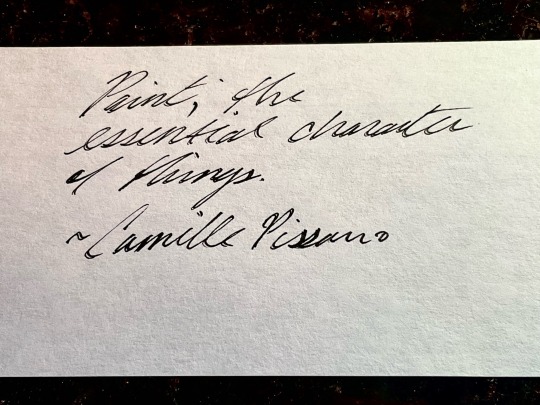 Paint; the
essential character
of things.
~Camille Pissarro